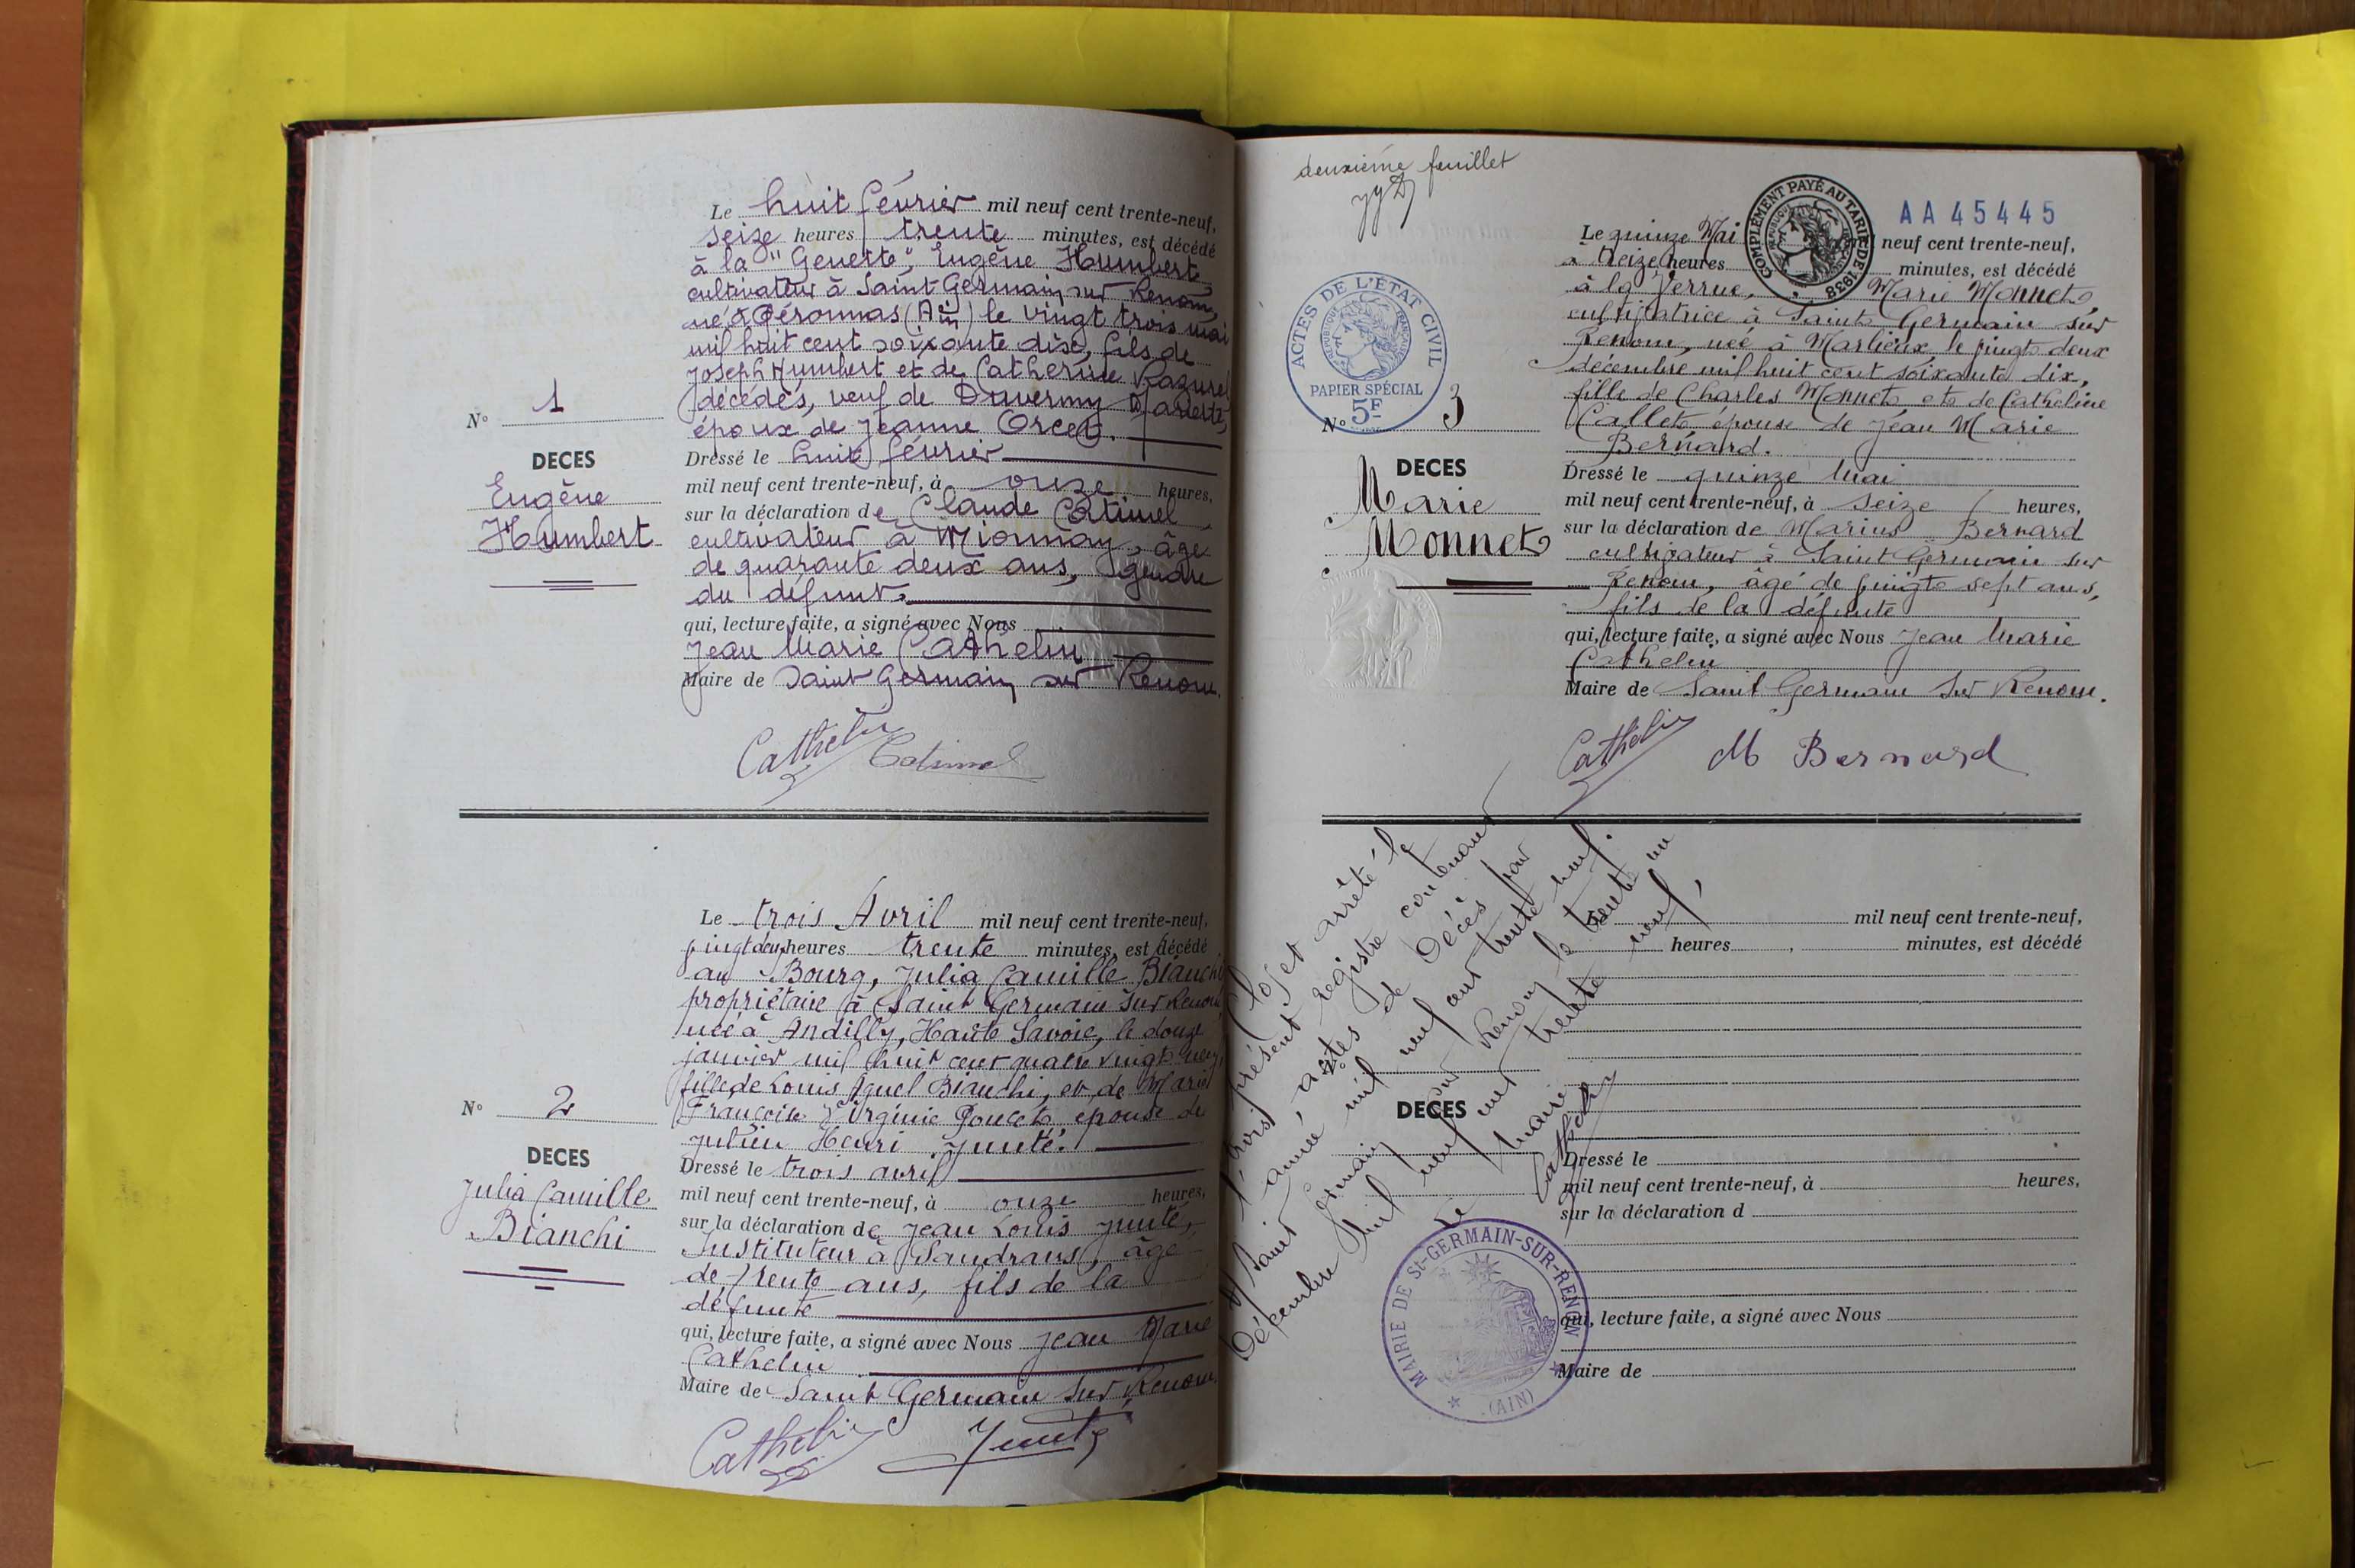 Le huit février mil neuf cent trente-neuf,
seize heures trente minutes, est décédé
à la "Genette", Eugène Humbert
cultivateur à Saint Germain sur Renom,
né à Péronnas (Ain) le vingt trois mai
mil huit cent soixante dix, fils de
Joseph Humbert et de Catherine
décédés, veuf de
époux de Jeanne Orcet.
N° 1
DECES
Eugène
Humbert
Dressé le huit février
mil neuf cent trente-neuf, à onze heures,
sur la déclaration de Claude Catimel
cultivateur à Mionnay, âgé
de quarante deux ans, gendre
du défunt.
qui, lecture faite, a signé avec Nous
Jean Marie Cathelin
Maire de Saint Germain sur Renom.
Cathelin Catimel
Le trois Avril mil neuf cent trente-neuf,
vingt deux heures trente minutes, est décédé
au Bourg, Julia Camille Bianchi
propriétaire à Saint Germain sur Renom,
née à Andilly, Haute Savoie, le douze
janvier mil huit cent quatre vingt neuf,
fille de Louis Bianchi, et de Marie
Françoise Virginie épouse de
Julien Henri Junté.
N° 2
DECES
Julia Camille
Bianchi
Dressé le trois avril
mil neuf cent trente-neuf, à onze heures,
sur la déclaration de Jean Louis Junté,
Instituteur à Sandrans, âgé
de trente ans, fils de la
défunte
qui, lecture faite, a signé avec Nous Jean Marie
Cathelin
Maire de Saint Germain sur Renom.
Cathelin Junté
deuxième feuillet
AA 45445
COMPLÉMENT PAYÉ AU TARIF DE 1938
ACTES DE L'ÉTAT CIVIL
REPUBLIQUE FRANÇAISE
PAPIER SPÉCIAL
5F
Le quinze Mai mil neuf cent trente-neuf,
à treize heures minutes, est décédé
à la Verrue, Marie Monnet
cultivatrice à Saint Germain sur
Renom, née à Marlieux le vingt deux
décembre mil huit cent soixante dix,
fille de Charles Monnet et de Catheline
Callet, épouse de Jean Marie
Bernard.
N° 3
DECES
Marie
Monnet
Dressé le quinze Mai
mil neuf cent trente-neuf, à seize heures,
sur la déclaration de Marius Bernard
cultivateur à Saint Germain sur
Renom, âgé de vingt sept ans,
fils de la défunte
qui, lecture faite, a signé avec Nous Jean Marie
Cathelin
Maire de Saint Germain sur Renom.
Cathelin M Bernard
Clos et arrêté le
présent registre contenant
trois actes de Décès pour
l'année mil neuf cent trente neuf.
A Saint Germain sur Renom le trente un
Décembre mil neuf cent trente neuf,
Le Maire
Cathelin
MAIRIE DE St-GERMAIN-SUR-RENON
(AIN)
Le mil neuf cent trente-neuf,
heures minutes, est décédé
DECES
Dressé le
mil neuf cent trente-neuf, à heures,
sur la déclaration d
qui, lecture faite, a signé avec Nous
Maire de